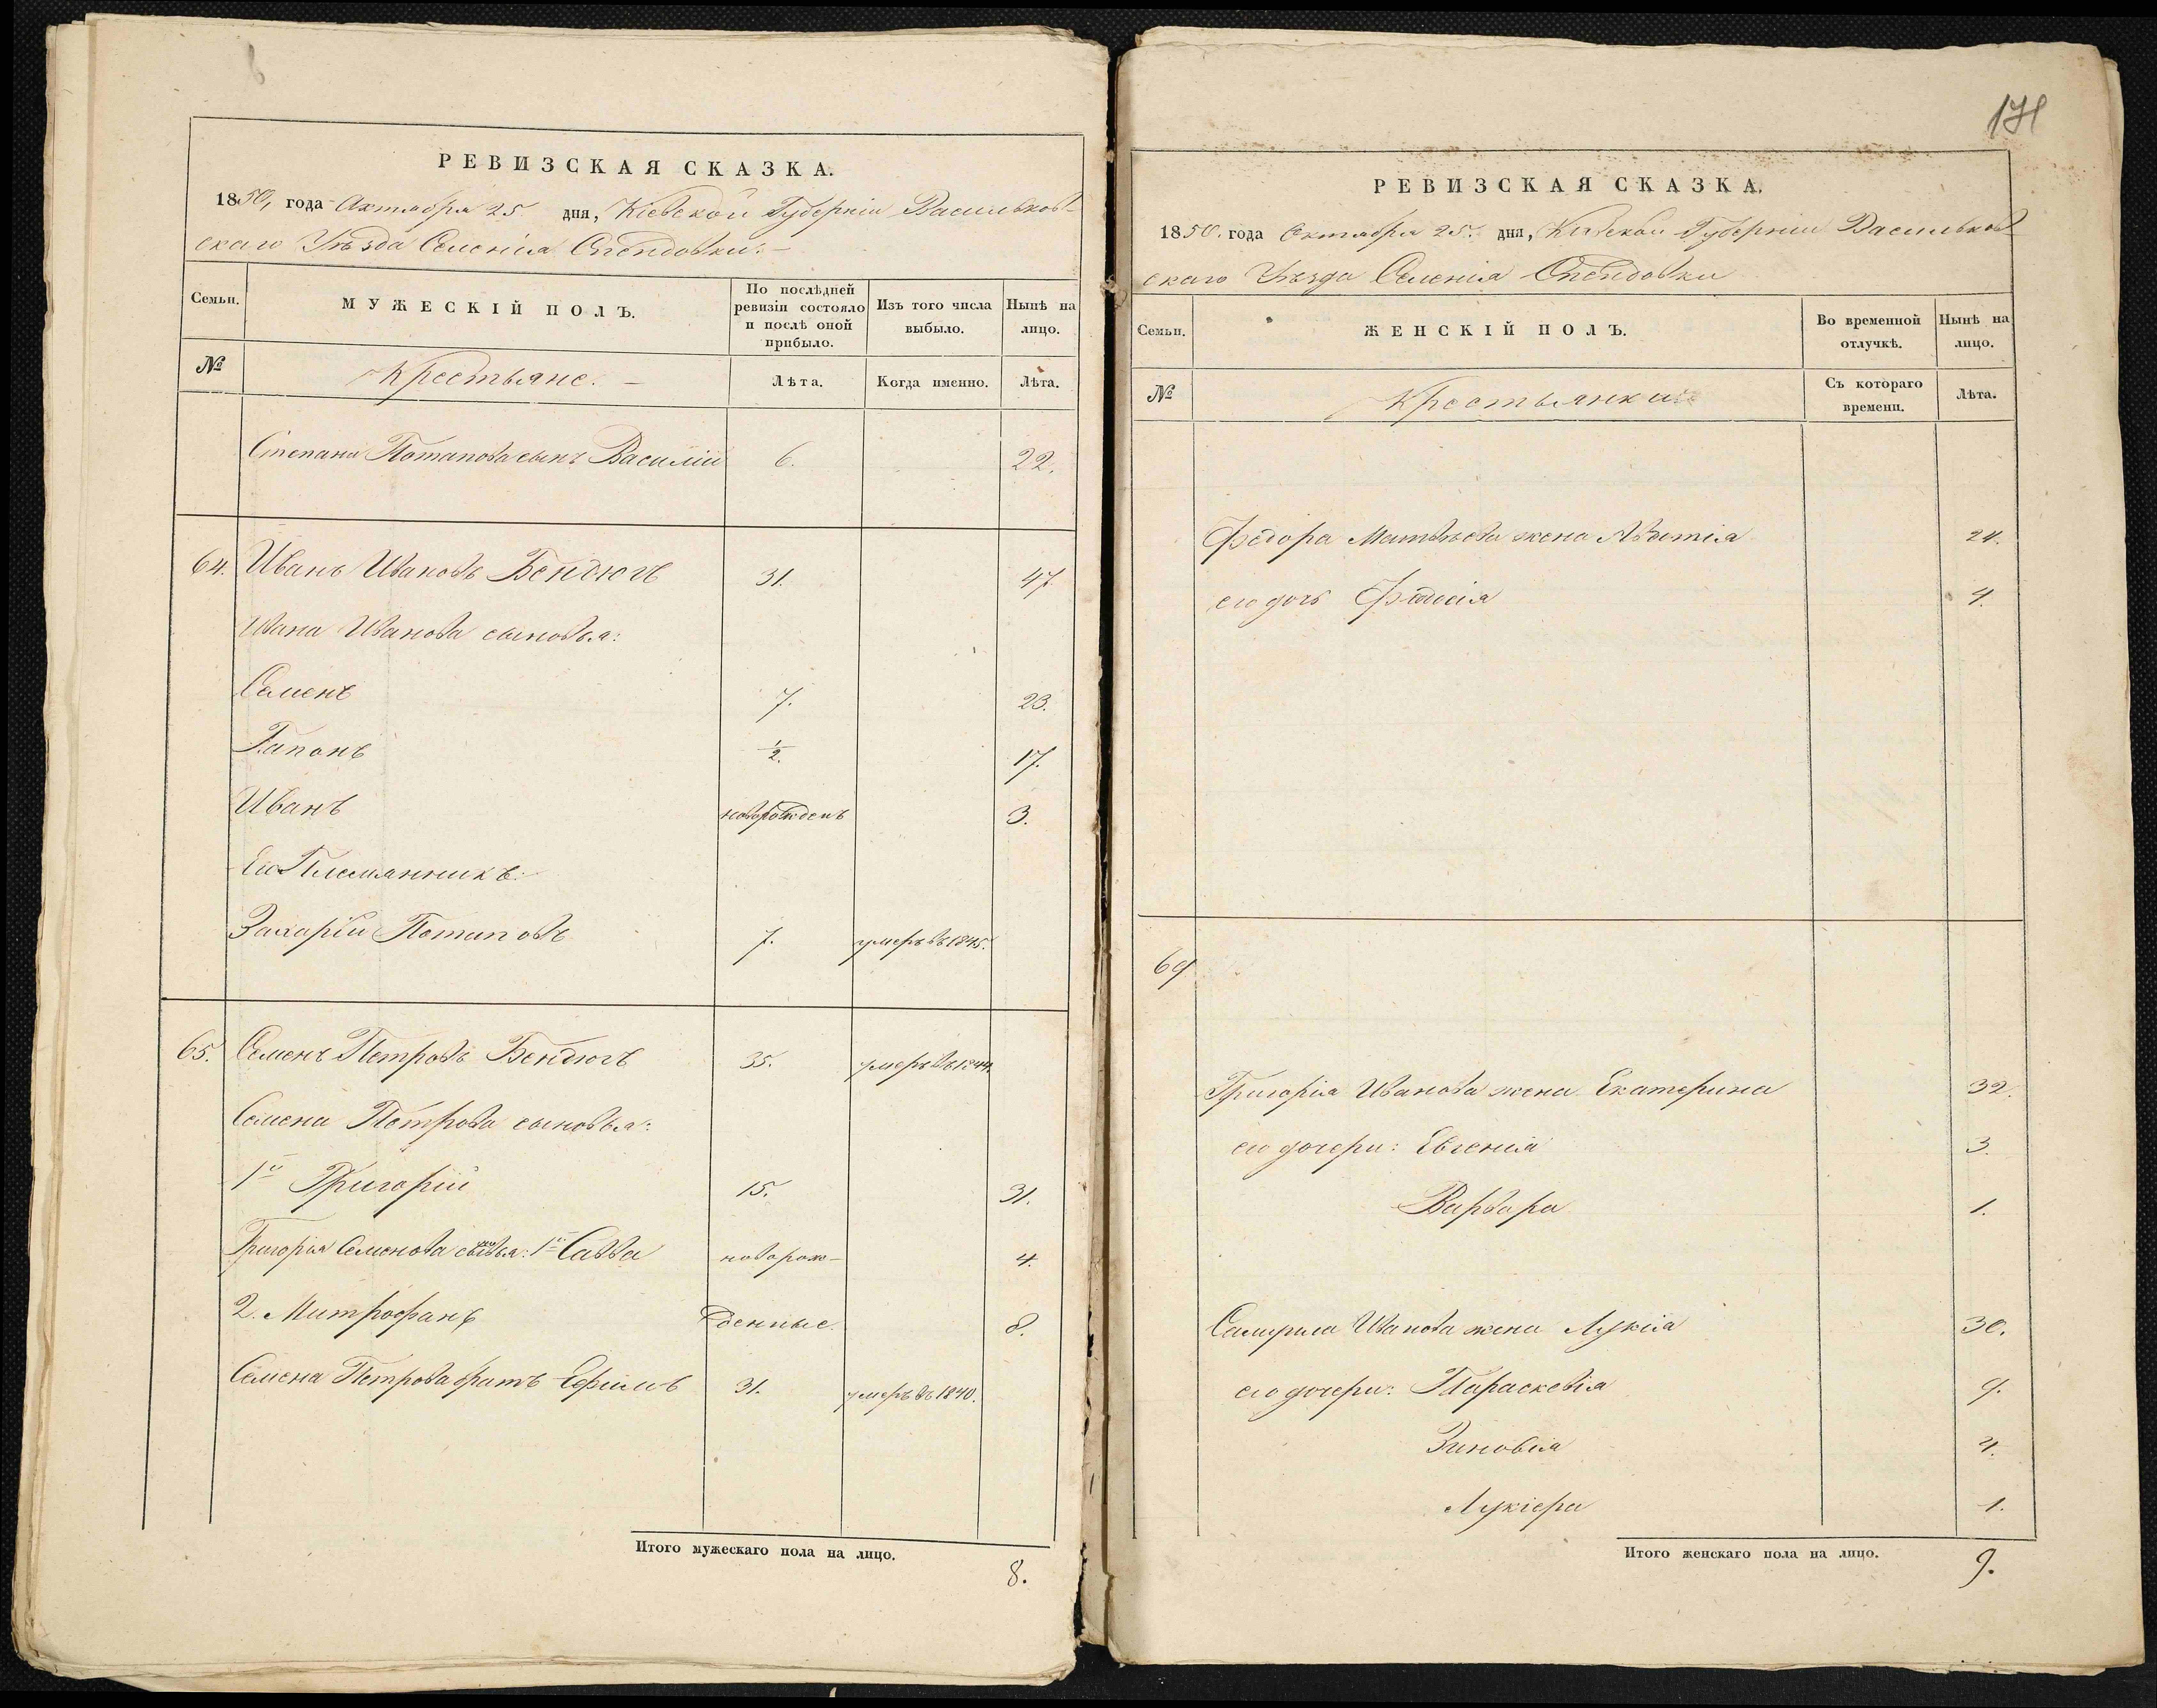 РЕВИЗСКАЯ СКАЗКА.
1850, года Октября 25 дня, Кіевской Губерніи Васильков-
скаго Уѣзда Селенія Спендовки.
Семьи.
МУЖЕСКІЙ ПОЛЪ.
По послѣдней ревизіи состояло и послѣ оной прибыло.
Изъ того числа выбыло.
Нынѣ на лицо.
№
Крестьяне.
Лѣта.
Когда именно.
Лѣта.
Степана Потапова сынъ Василій 6. 22.
64. Иванъ Ивановъ Бендюгъ 31. 47
Ивана Иванова сыновья:
Семенъ 7. 23.
Гапонъ 1/2. 17.
Иванъ новорожденъ 3.
Его Племянникъ:
Захарій Потаповъ 7. умеръ въ 1845.
65. Семенъ Петровъ Бендюгъ 35. умеръ въ 1844.
Семена Петрова сыновья:
1й Григорій 15. 31.
Григорія Семенова сыновья: 1й Савва новорож- 4.
2. Митрофанъ денные. 8.
Семена Петрова братъ Ефимъ 31. умеръ въ 1840.
Итого мужескаго пола на лицо. 8.
171
РЕВИЗСКАЯ СКАЗКА.
1850. года Октября 25. дня, Кіевской Губерніи Васильков-
скаго Уѣзда Селенія Спендовки
Семьи.
ЖЕНСКІЙ ПОЛЪ.
Во временной отлучкѣ.
Нынѣ на лицо.
№
Крестьянки
Съ котораго времени.
Лѣта.
Федора Матвѣева жена 24.
его дочь 4.
69
Григорія Иванова жена Екатерина 32.
его дочери: Евгенія 3.
Варвара 1.
Иванова жена Лукія 30.
его дочери: Параскевія 9.
Зиновія 4.
Лукіера 1.
Итого женскаго пола на лицо. 9.